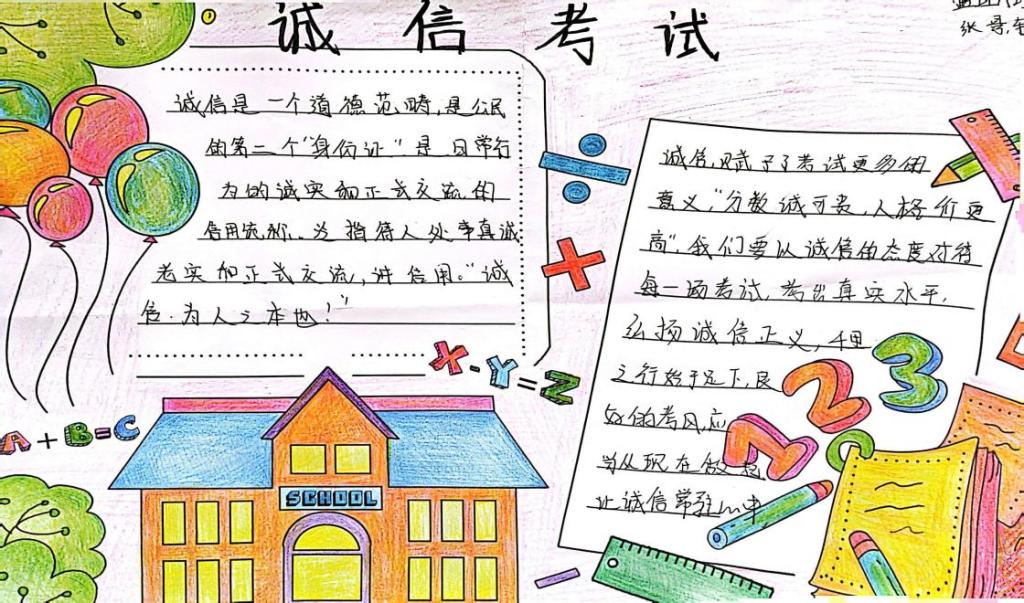 诚信考试
诚信是一个道德范畴,是公民
的第二个"身份证"是日常行
为的诚实和正式交流的
信用统称。为指待人处事真诚
老实和正式交流,讲信用。"诚
信.为人之本也!"
诚信,赋予了考试更多的
意义,"分数诚可贵,人格价更
高",我们要从诚信的态度对待
每一场考试,考出真实水平,
弘扬诚信正义,千里
之行始于足下,良
好的考风,应
当从现在做起
让诚信常驻心中
X-Y=Z
A+B=C
SCHOOL
1 2 3